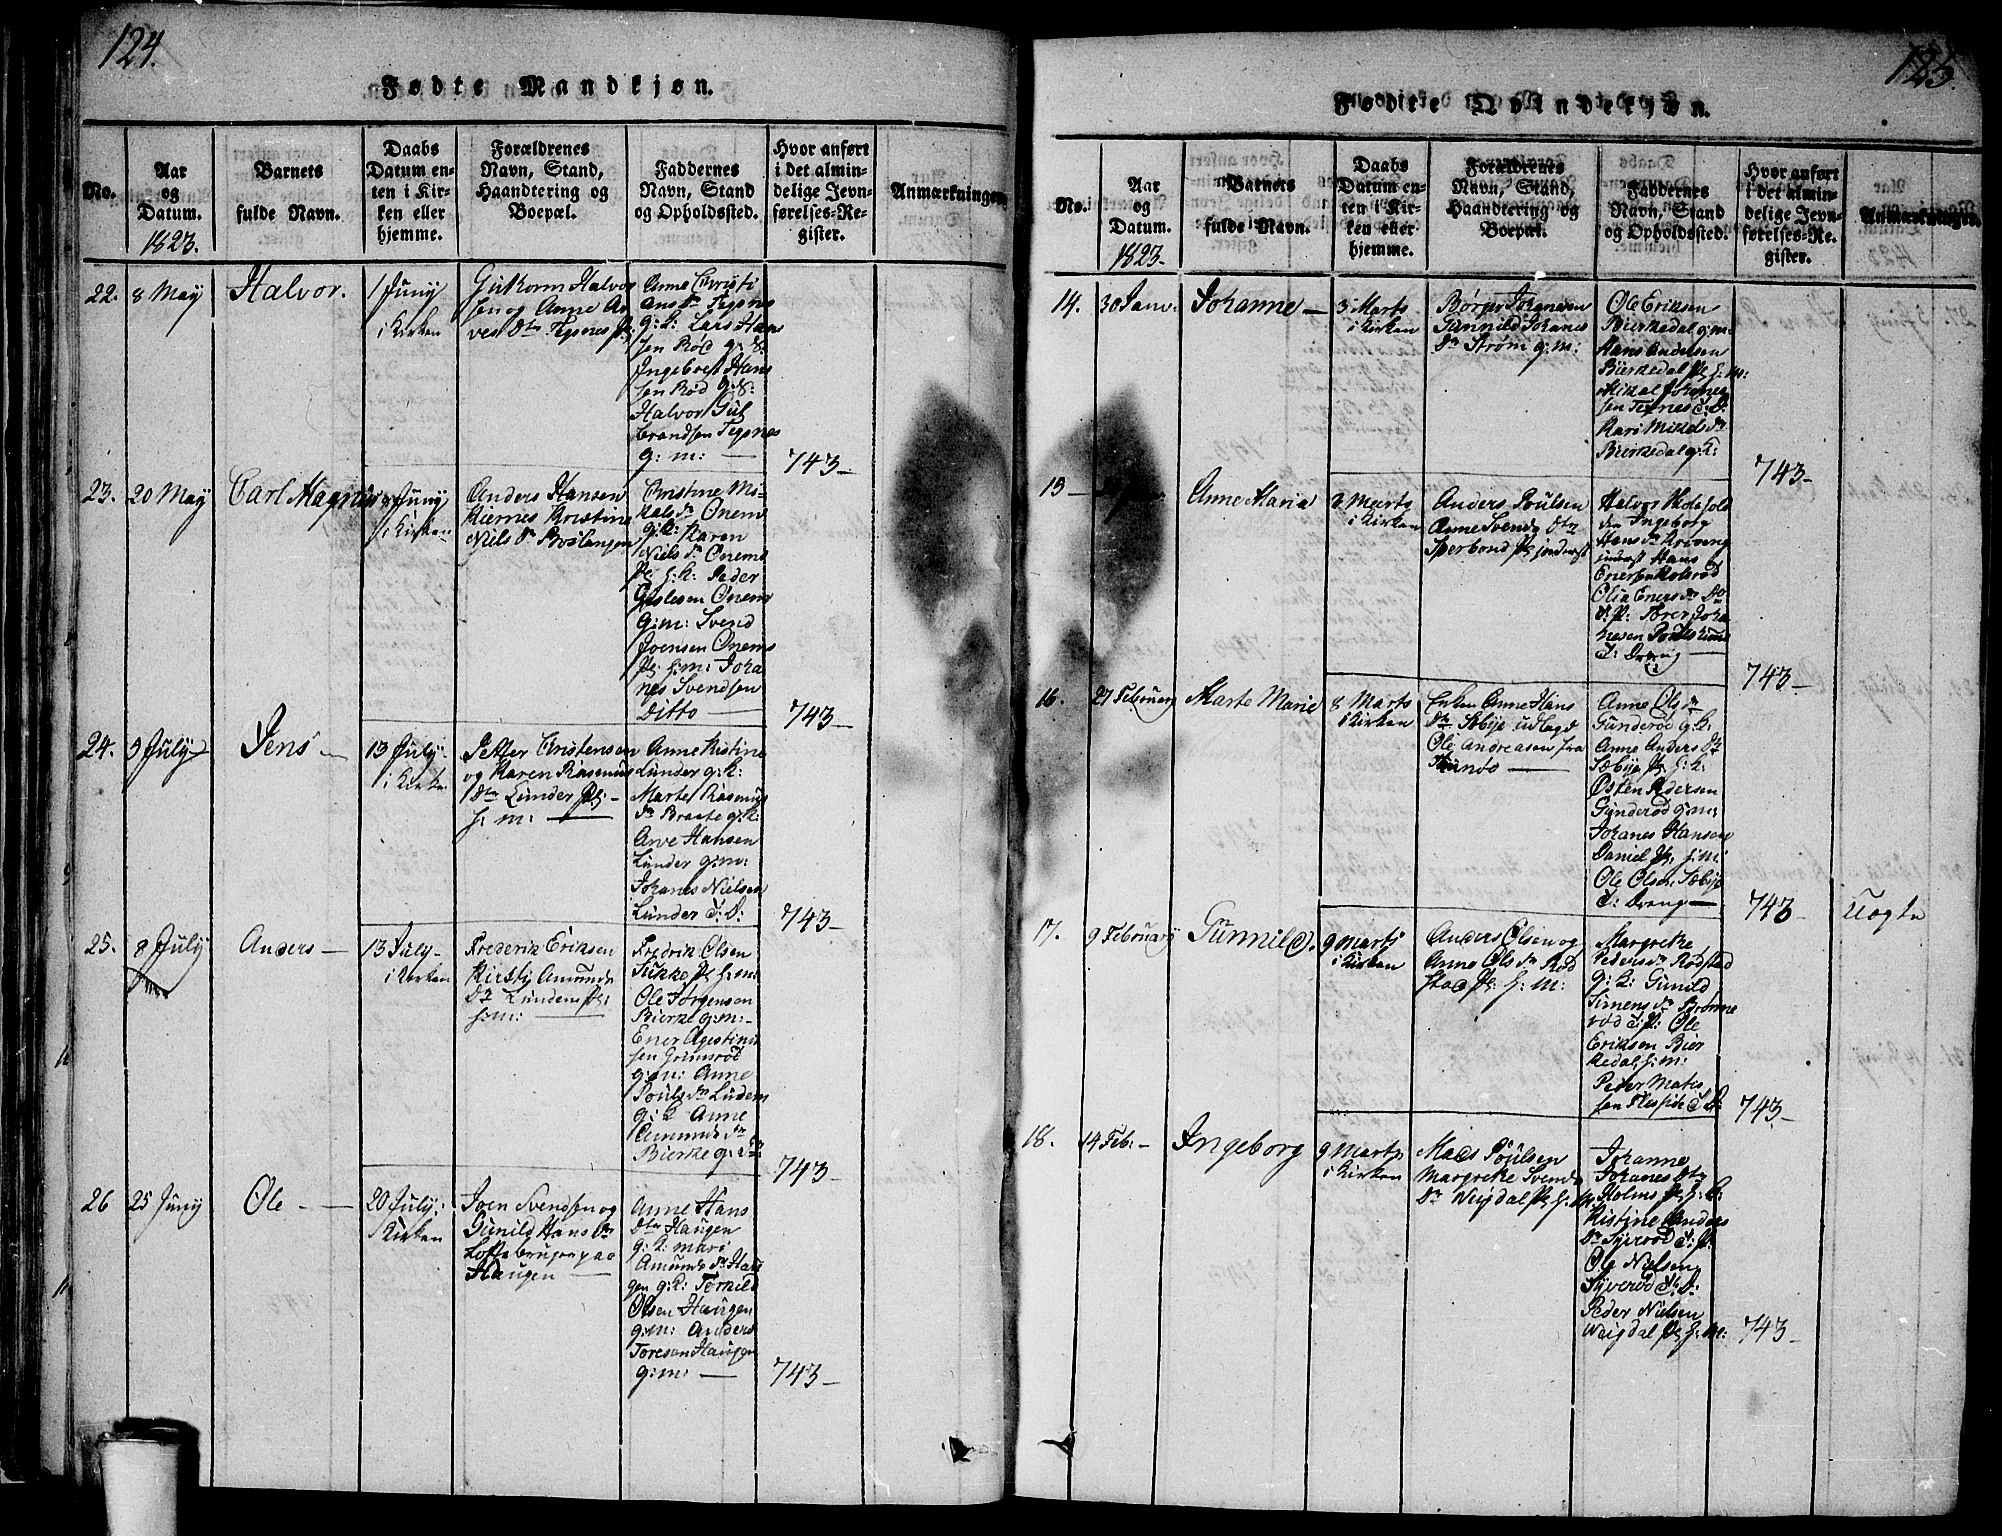 124.
Fødte Mandkjøn.
No.
Aar
og
Datum.
1823.
Barnets
fulde Navn.
Daabs
Datum en-
ten i Kir-
ken eller
hjemme.
Forældrenes
Navn, Stand,
Haandtering og
Boepæl.
Faddernes
Navn, Stand
og Opholdssted.
Hvor anført
i det almin-
delige Jevn-
førelses-Re-
gister.
Anmærkninger
22.
8 May
Halvor.
1 Juny
i Kirken
Gulkorm Halvor
sen og Anne Ar
ves Dtr Tegsnes
Anne Christi
ans Dr Tegsnes
g: k: Lars Han
sen Röd g: k:
Ingebret Hans
sen Röd g: k:
Halvor Gul
brandsen Tegsnes
g: m: —
743—
23.
20 May
Carl Magnus
Juny
i Kirken
Anders Hansen
Kiernes Kristine
Niels Dr
Christine Mi-
kels Dr Onem
g: K: Karen
Niels Dr Onems
Pl: h: K: Peder
Gislesen Onem
g: m: Svend
Joensen Onems
Pl: h: m: Joha
nes Svendsen
Ditto —
743—
24.
9 July
Jens —
13 July
i Kirken
Petter Christensen
og Karen Rasmus
Dtr Lunder Pl:
h: m: —
Anne Kistine
Lunder g: K:
Marte Rasmus
Dr Braate g: K:
Arve Hansen
Lunder g: m:
Johanes Nielsen
Lunder T: D:
743—
25.
8 July
Anders —
13 July—
i Kirken
Frederik Eriksen
Kirsti Amunds
Dr Lundens Pl:
h: m: —
Fredrik Olsen
Pl: h: m:
Ole Jørgensen
Bierke g: m:—
Ener Agestinus
sen Grimsröd
g: m: Anne
Pouls Dr Ludem
g: K Anne
Amunds Dr
Bierke g: K:
743—
26
25 Juny
Ole —
20 July:
i Kirken
Joen Svendsen og
Gunild Hans Dr
paa
Haugen —
Anne Hans
Dtr Haugen
g: k: Mari
Amunds Dr Hau
gen g: k: Torkild
Olsen Haugen
g: m: Anders
Toresen Haugen
g: m: —
743—
125.
Fødte Qvindekjøn.
No.
Aar
og
Datum.
1823.
Barnets
fulde Navn.
Daabs
Datum en-
ten i Kir-
ken eller
hjemme.
Forældrenes
Navn, Stand,
Haandtering og
Boepæl.
Faddernes
Navn, Stand
og Opholdssted.
Hvor anført
i det almin-
delige Jevn-
førelses-Re-
gister.
Anmærkninger
14.
30 Janu:
Johanne —
3 Marts
i Kirken
Børger Johanesen
Gunnild Johanes
Dr Strøm g: m:
Ole Eriksen
Bierkedal g: m:
Hans Andersen
Bierkedal Pl: h: m:
Mikal Johanes
sen Tegnes T: D:
Kari Mikkels Dr
Bierkedal g: K:
743—
15—
Anne Maria
8 Marts
i Kirken
Anders Poulsen
Anne Svends Dtr
Halvor
Ingeborg
Hans Dr
Hans
Olia Eners Dr Do
T: P: Torer Joha
nesen
T: Dreng —
743—
16.
27 February
Marte Marie
8 Marts
i Kirken
Enken Anne Hans
Dr Sæbye udlagd
Ole Andreasen fra
Anne Ols Dr
Gunderöd g: K.
Anne Anders Dr
Sæbye Pl: h: K:
Østen Pedersen
Gunderöd g: m:
Johanes Hansen
Daniel Pl: h: m:
Ole Olsen Sæbye
T: Dreng —
743—
Uægte
17.
9 February
Gunnild.
9 Marts
i Kirken
Anders Olsen og
Anne Ols Dr Röd
stad Pl: h: m:
Margrethe
Peders Dr Rödstad
g: K: Gunild
Simens Dr Brömme
röd T: P: Ole
Eriksen Bier
kedal h: m:
Peder Matis
sen T: D:
743—
18.
14 Feb: —
Ingeborg
9 Marts
i Kirken
Mads Poulsen
Margrethe Svends
Dr Weigdal Pl: h: M:
Johanne
Johanes Dtr
Holms Pl: h: K:
Kistine Anders
Dr Syveröd T: P:
Ole Nielsen
Syveröd T: D:
Peder Nielsen
Weigdal Pl: h: M:
743—